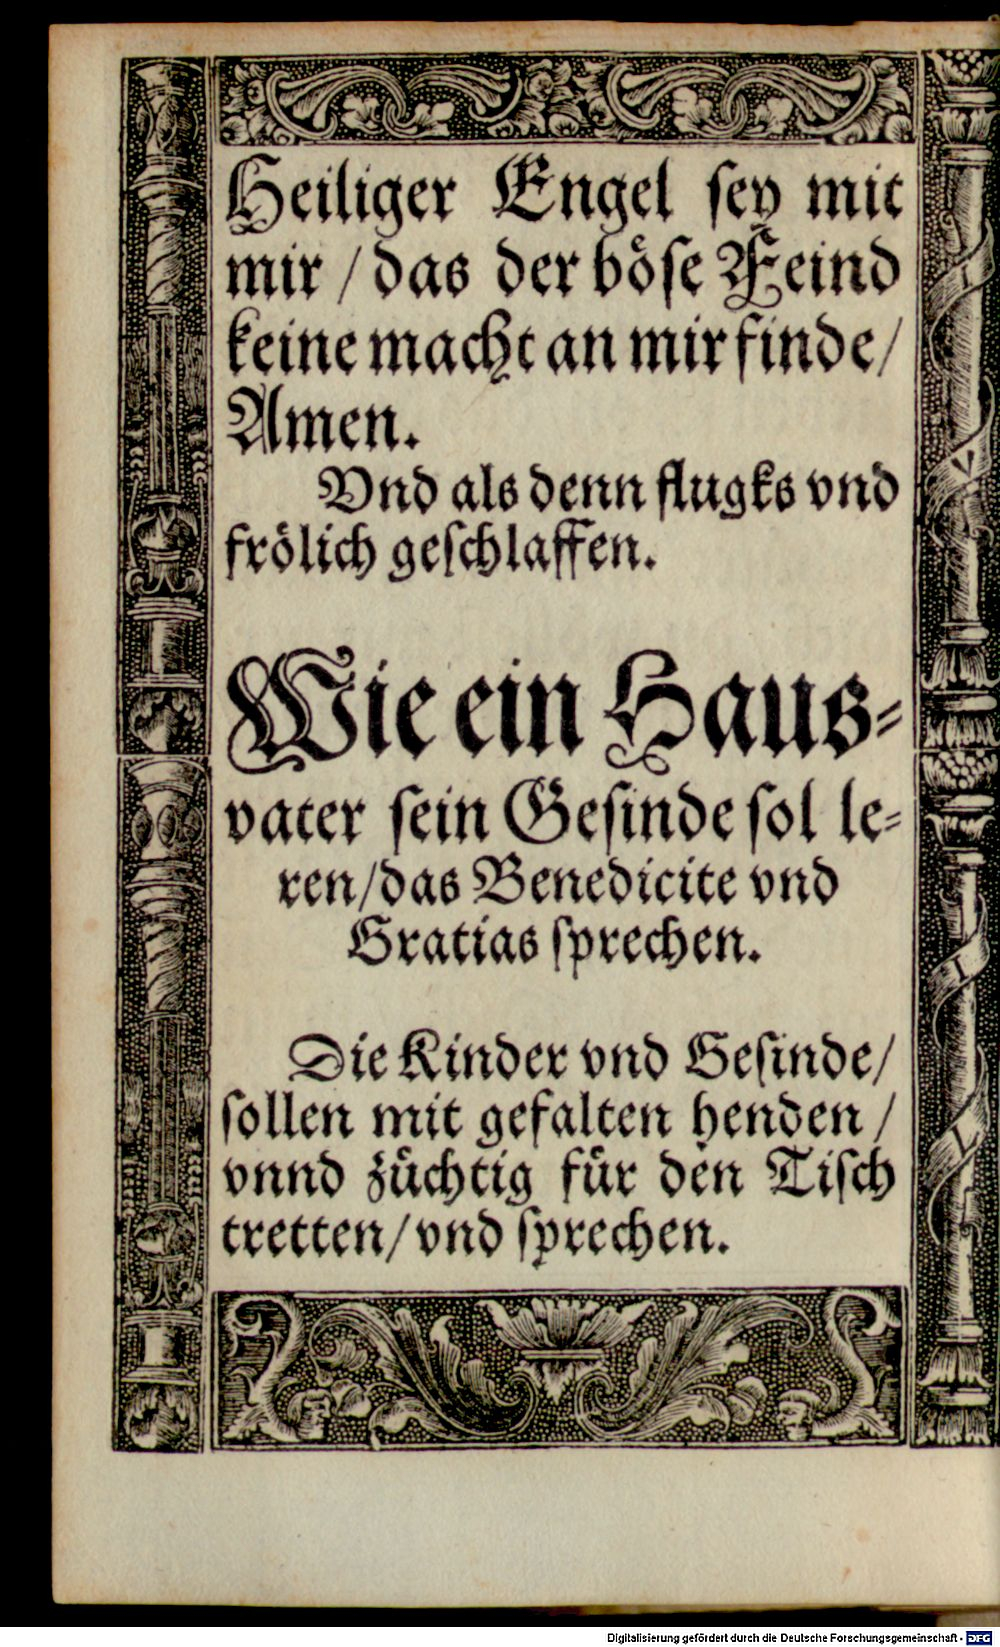 Heiliger Engel ſey mit
mir / das der böſe Feind
keine macht an mir finde /
Amen.
Vnd als denn flugks vnd
frölich geſchlaffen.
Wie ein Haus-
vater ſein Geſinde ſol le-
ren / das Benedicite vnd
Gratias ſprechen.
Die Kinder vnd Geſinde /
ſollen mit gefalten henden /
vnnd züchtig für den Tiſch
tretten / vnd ſprechen.
Digitalisierung gefördert durch die Deutsche Forschungsgemeinschaft - DFG